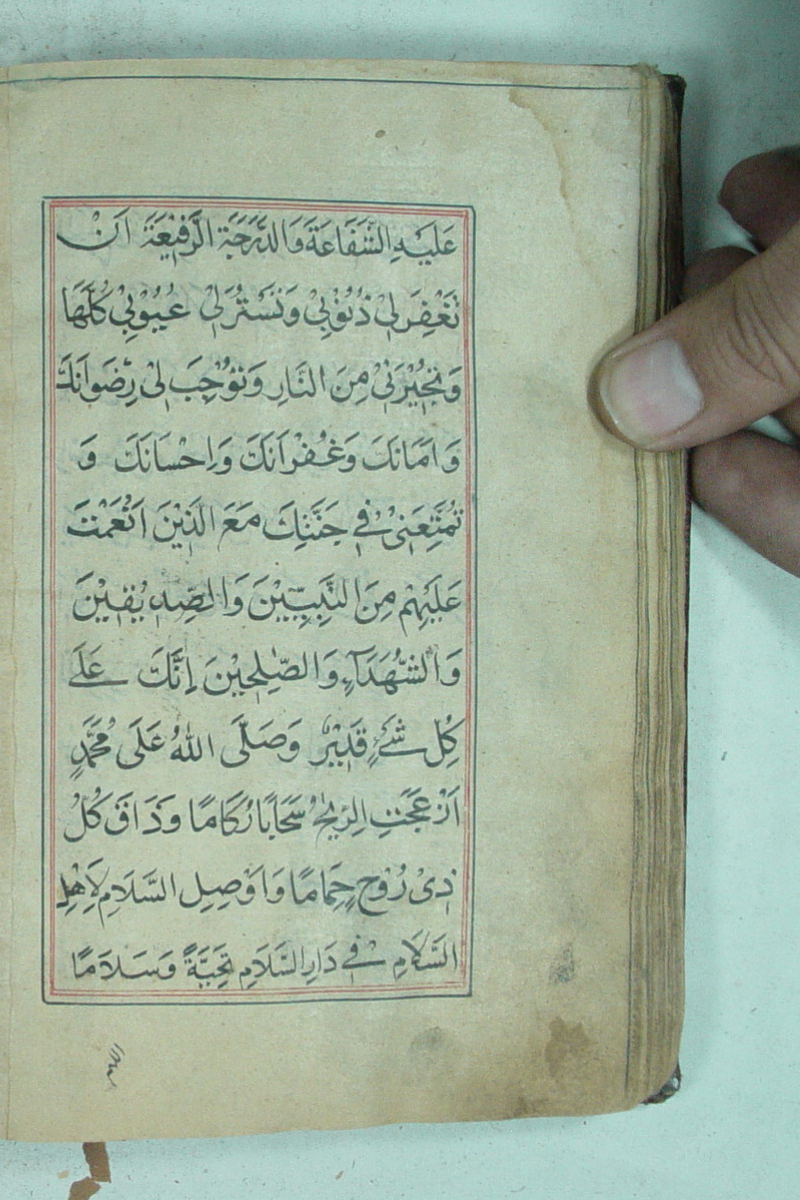 عَلَيْهِ الشَّفَاعَةَ وَالدَّرَجَةَ الرَّفِيْعَةَ اَنْ
تَغْفِرَ لِيْ ذُنُوْبِيْ وَتَسْتُرَ لِيْ عُيُوْبِيْ كُلَّهَا
وَتُجِيْرَنِيْ مِنَ النَّارِ وَتُوْجِبَ لِيْ رِضْوَانَكَ
وَاَمَانَكَ وَغُفْرَانَكَ وَاِحْسَانَكَ وَ
تُمَتِّعَنِيْ فِيْ جَنَّتِكَ مَعَ الَّذِيْنَ اَنْعَمْتَ
عَلَيْهِمْ مِنَ النَّبِيِّيْنَ وَالصِّدِّيْقِيْنَ
وَالشُّهَدَآءِ وَالصّٰلِحِيْنَ اِنَّكَ عَلٰے
كُلِّ شَےْءٍ قَدِيْرٌ وَصَلَّى اللّٰهُ عَلَى مُحَمَّدٍ
اَزْعَجَتِ الرِّيٰحُ سَحَابًا رُكَامًا وَذَاقَ كُلُّ
ذِيْ رُوْحٍ حِمَامًا وَاَوْصِلِ السَّلَامَ لِاَهْلِ
السَّلَامِ فِيْ دَارِ السَّلَامِ تَحِيَّةً وَسَلَامًا